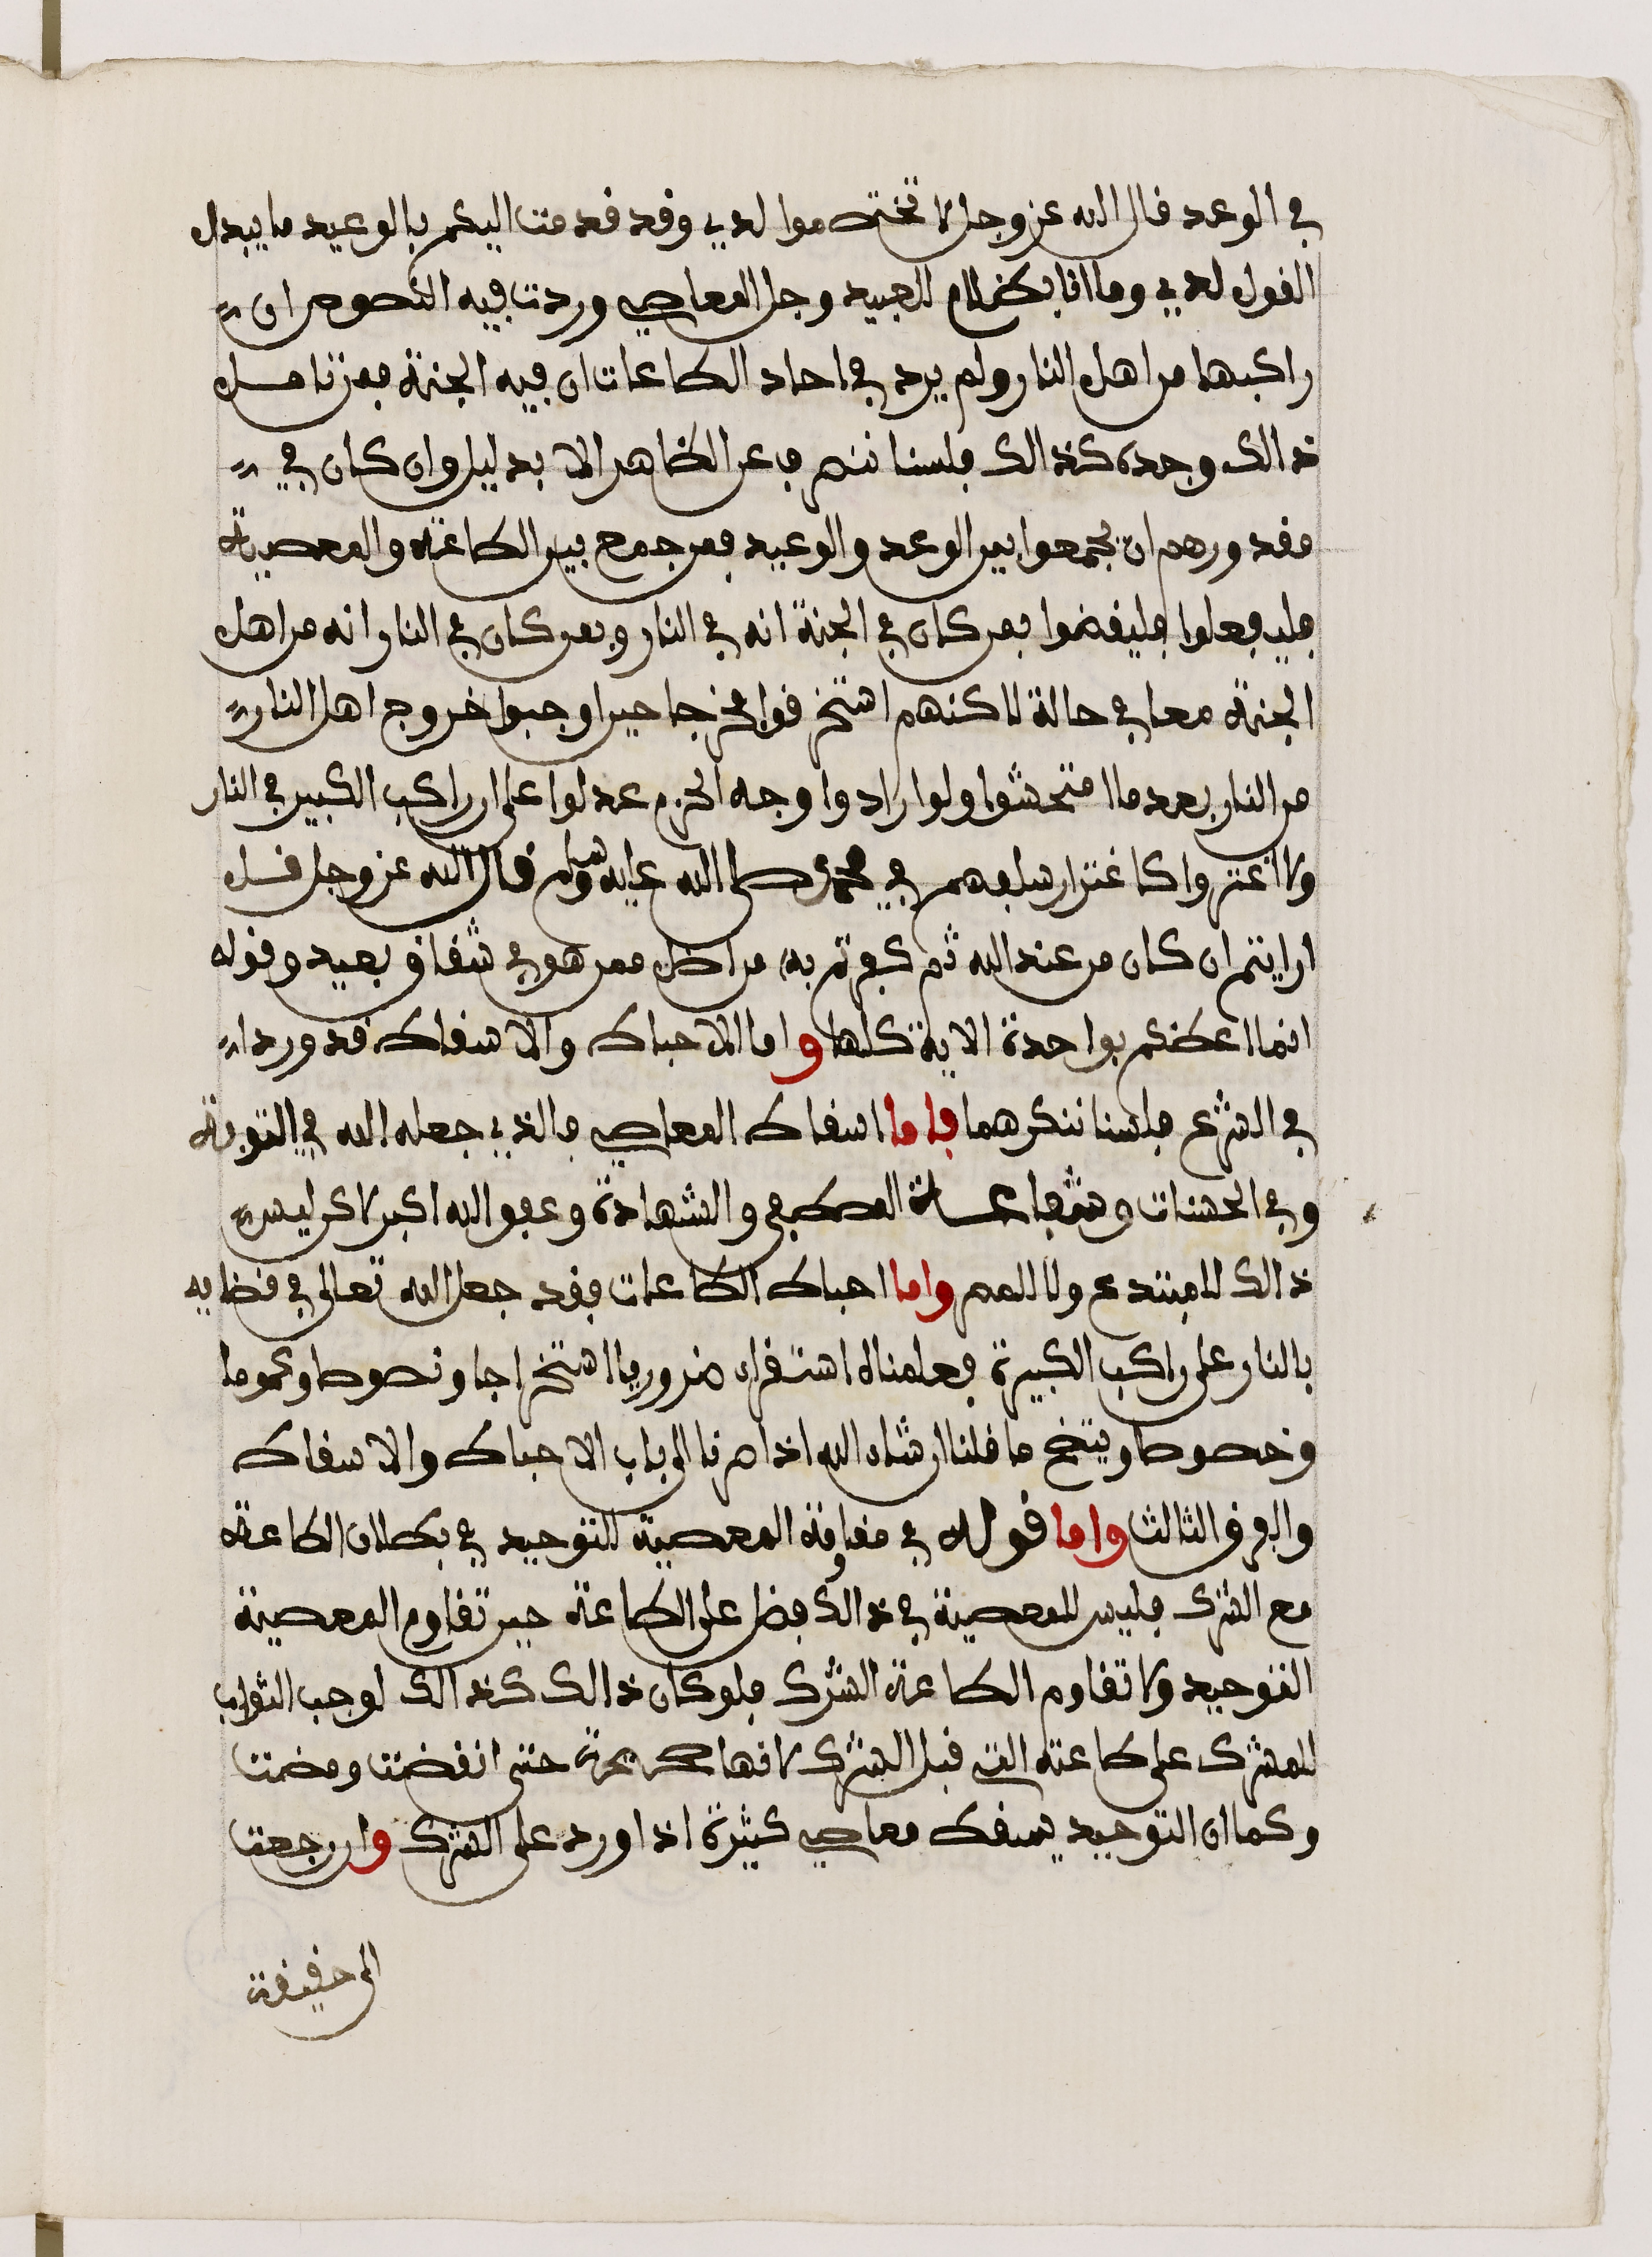 في الوعد قال الله عز وجل لا تختصموا لدي وقد قدمت اليكم بالوعيد ما يبدل
القول لدي وما انا بظلام للعبيد وجل المعاصي وردت فيه النصوص ان
راكبها من اهل النار ولم يرد في احاد الطاعات ان فيه الجنة فمن تامل
ذالك وجده كذالك فلسنا ننصرف عن الظاهر الا بدليل وان كان في
مقدورهم ان يجمعوا بين الوعد والوعيد فمن جمع بين الطاعة والمعصية
فليفعلوا فليقضوا فمن كان في الجنة انه في النار وبمن كان في النار انه من اهل
الجنة معا في حالة لاكنهم استخرقوا مخرجا حين اوجبوا خروج اهل النار
من النار بعد ما امتحشوا ولو ارادوا وجه الحزم عدلوا على ان راكب الكبير في النار
ولا اغتروا كاغترار سلفهم في محمد صلى الله عليه وسلم قال الله عز وجل قل
ارايتم ان كان من عند الله ثم كفرتم به من اضل ممن هو في شقاق بعيد وقوله
انما اعظكم بواحدة الاية كلها واما الاحباط والاسقاط قد وردا
في الشرع فلسنا ننكرهما فاما اسقاط المعاصي فالذي جعله الله في التوبة
وفي الحسنات وشفاعة المصطفى والشهادة وعفو الله اكبر لاكن ليس
ذالك للمبتدع ولا للمصر واما احباط الطاعات فقد جعل الله تعالى في قضايه
بالنار على راكب الكبيرة فعلمناه استقراء ضروريا استخراجا ونصوصا وعموما
وخصوصا ويتضح ما قلنا ان شاء الله اذا صرنا الى باب الاحباط والاسقاط
والفرق الثالث واما قوله في مقاومة المعصية للتوحيد في بطلان الطاعة
مع الشرك فليس للمعصية في ذالك فضل على الطاعة حين تقاوم المعصية
التوحيد ولا تقاوم الطاعة الشرك فلو كان ذالك كذالك لوجب الثواب
للمشرك على طاعته التي قبل الشرك لانها حتى انقضت ومضت
وكما ان التوحيد يسقط معاصي كثيرة اذا ورد على الشرك وان رجعت
الى حقيقة